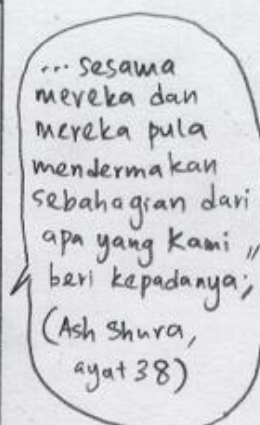 ... sesama
mereka dan
mereka pula
mendermakan
sebahagian dari
apa yang Kami
beri kepadanya;"
(Ash Shura,
ayat 38)